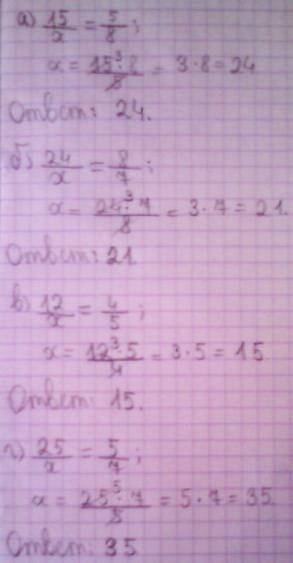 а) 15/x = 5/8;
x = 15³·8/5 = 3·8 = 24
Ответ: 24.
б) 24/x = 8/7;
x = 24³·7/8 = 3·7 = 21.
Ответ: 21
в) 12/x = 4/5;
x = 12³·5/4 = 3·5 = 15
Ответ: 15.
г) 25/x = 5/7;
x = 25⁵·7/5 = 5·7 = 35.
Ответ: 35